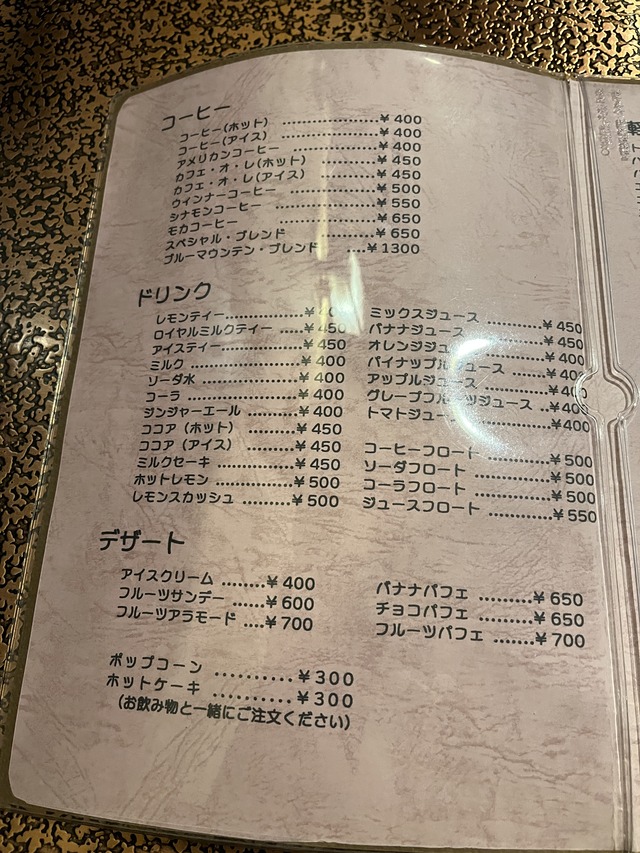 コーヒー
コーヒー(ホット) ……………¥ 400
コーヒー(アイス) ……………¥ 400
アメリカンコーヒー ……………¥ 400
カフェ・オ・レ(ホット) ………¥ 450
カフェ・オ・レ(アイス) ………¥ 450
ウインナーコーヒー ……………¥ 500
シナモンコーヒー ……………¥ 550
モカコーヒー ……………¥ 650
スペシャル・ブレンド ………¥ 650
ブルーマウンテン・ブレンド ….¥1300
ドリンク
レモンティー……………¥
ロイヤルミルクティー ……¥ 450
アイスティー……………¥ 450
ミルク ……………¥ 400
ソーダ水 ……………¥ 400
コーラ ……………¥ 400
ジンジャーエール ………¥ 400
ココア (ホット) ………¥ 450
ココア (アイス) ………¥ 450
ミルクセーキ ……………¥ 450
ホットレモン ……………¥ 500
レモンスカッシュ ………¥ 500
ミックスジュース ………¥ 450
バナナジュース ¥ 450
オレンジジュ ¥ 400
パイナップルジュース ¥ 400
アップルジュース ………¥ 400
グレープフルーツジュース ..¥400
トマトジュース ¥400
コーヒーフロート ¥ 500
ソーダフロート ………¥ 500
コーラフロート ………¥ 500
ジュースフロート ………¥ 550
デザート
アイスクリーム ……..¥ 400
フルーツサンデー ……¥ 600
フルーツアラモード ….¥ 700
バナナパフェ ………¥ 650
チョコパフェ ………¥ 650
フルーツパフェ …….¥ 700
ポップコーン ……….¥300
ホットケーキ ……….¥300
(お飲み物と一緒にご注文ください)
軽